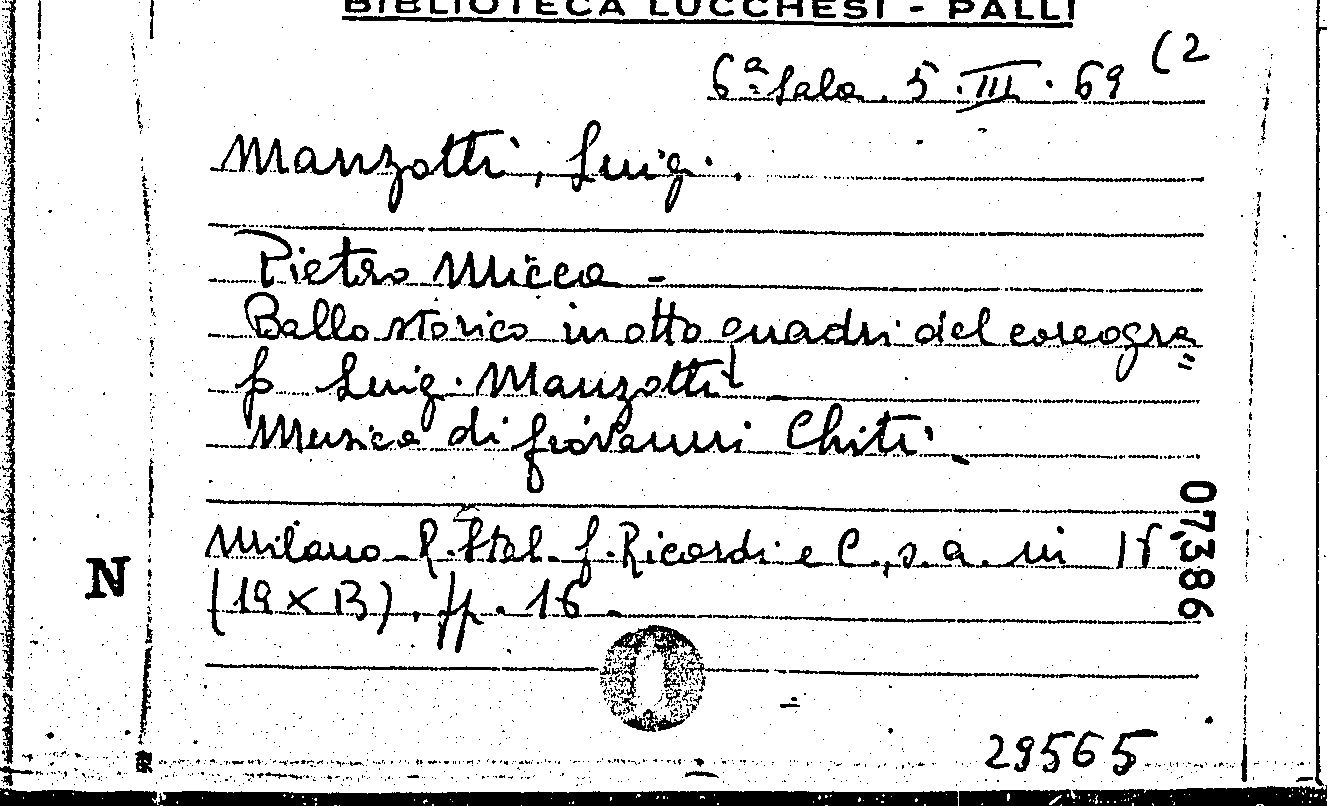 BIBLIOTECA LUCCHESI - PALLI
6ª Sala. 5.III.69 (2
Manzotti, Luigi.
Pietro Micca -
Ballo storico in otto quadri del coreogra=
fo Luigi Manzotti
Musica di Giovanni Chiti. -
Milano R. Stab. G. Ricordi e C., s. a. in
(19 X 13). pp. 16 -
07,386
N
29565